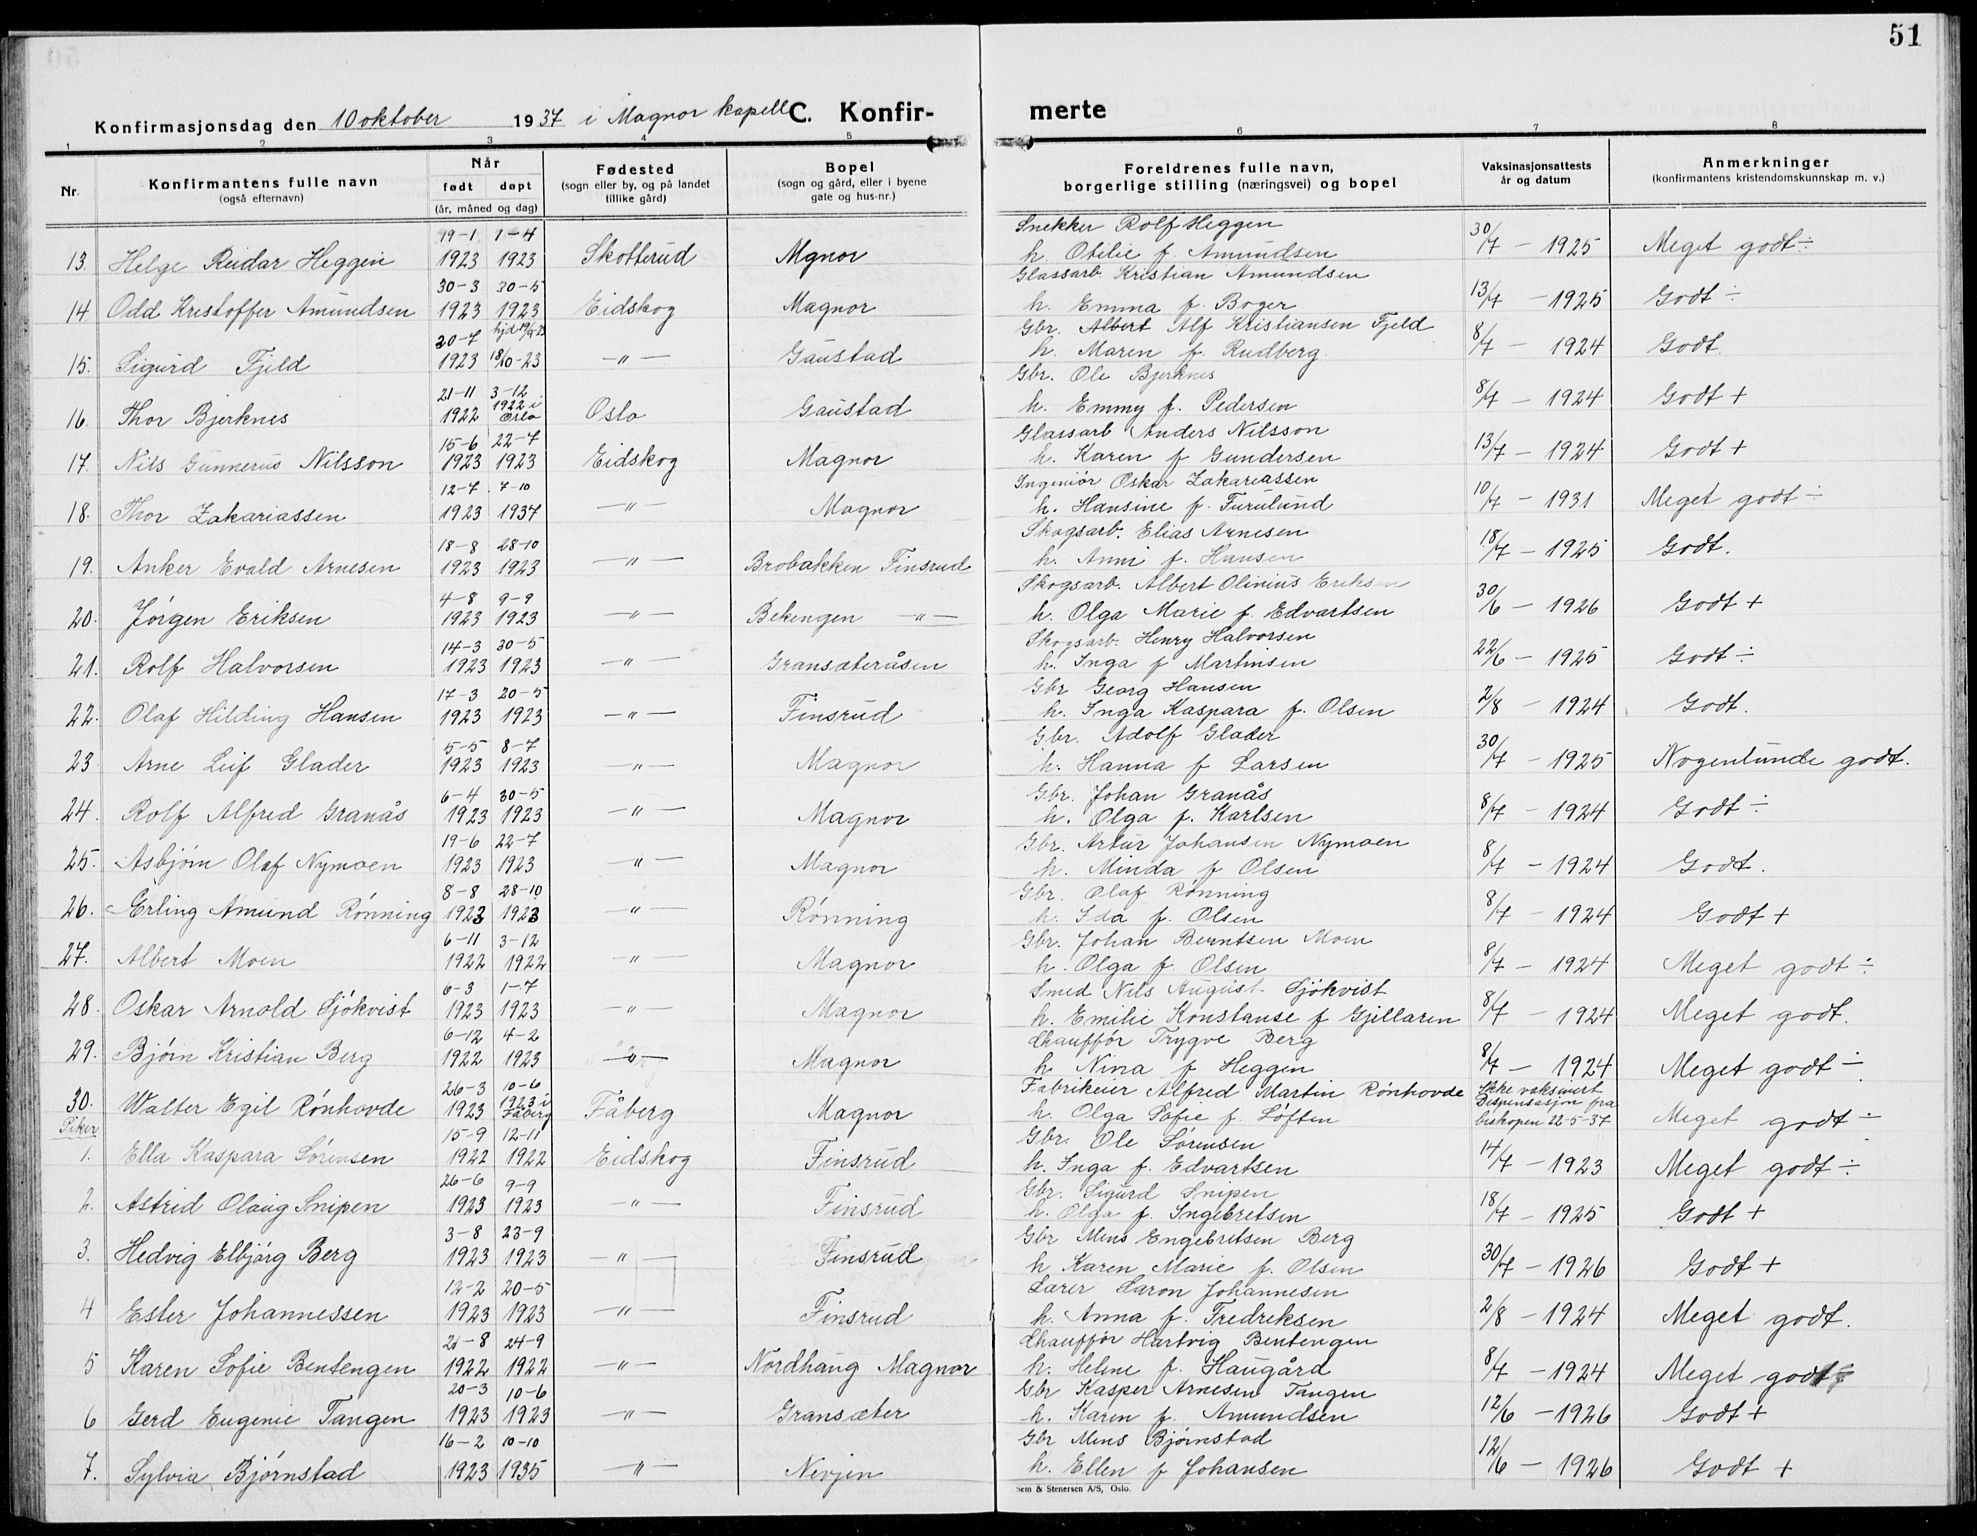 51
Konfirmasjonsdag den 10 oktober 1937 i Magnor kapell C. Konfir- merte
1 2 3 4 5 6 7 8
Nr. Konfirmantens fulle navn (også efternavn) Når født døpt (år, måned og dag) Fødested (sogn eller by, og på landet tillike gård) Bopel (sogn og gård, eller i byene gate og hus-nr.) Foreldrenes fulle navn, borgerlige stilling (næringsvei) og bopel Vaksinasjonsattests år og datum Anmerkninger (konfirmantens kristendomskunnskap m. v.)
19-1 1-4 Snekker Rolf Heggen
13. Helge Reidar Heggen 1923 1923 Skotterud Mgnor h. Otilie f. Amundsen 30/7 - 1925 Meget godt ÷
30-3 30-5 Glassarb. Kristian Amundsen
14 Odd Kristoffer Amundsen 1923 1923 Eidskog Magnor h. Emma f. Boger 13/7 - 1925 Godt ÷
20-7 Gbr. Albert Alf Kristiansen Fjeld
15. Sigurd Fjeld 1923 18/10-23 -"- Gaustad h. Maren f. Rudberg. 8/7 - 1924 Godt
21-11 3-12 Gbr. Ole Bjerknes
16. Thor Bjerknes 1922 1922 i Oslo Oslo Gaustad h. Emmy f. Pedersen 8/7 - 1924 Godt +
15-6 22-7 Glassarb Anders Nilsson
17. Nils Gunnerus Nilsson 1923 1923 Eidskog Magnor h. Karen f Gundersen 13/7 - 1924 Godt +
12-7 7-10 Ingeniör Oskar Zakariassen
18. Thor Zakariassen 1923 1937 -"- Magnor h. Hansine f. Furulund 10/7 - 1931 Meget godt ÷
18-8 28-10 Skogsarb. Elias Arnesen
19. Anker Evald Arnesen 1923 1923 -"- Brobakken Finsrud h. Anni f. Hansen 18/7 - 1925 Godt.
4-8 9-9 Skogsarb. Albert Olinius Eriksen
20. Jørgen Eriksen 1923 1923 -"- Bekengen -"- h. Olga Marie f. Edvartsen 30/6 - 1926 Godt +
14-3 30-5 Skogsarb. Henry Halvorsen
21. Rolf Halvorsen 1923 1923 -"- Gransæteråsen h. Inga f Martinsen 22/6 - 1925 Godt ÷
17-3 20-5 Gbr Georg Hansen
22. Olaf Hilding Hansen 1923 1923 -"- Finsrud h. Inga Kaspara f. Olsen 2/8 - 1924 Godt.
5-5 8-7 Gbr. Adolf Glader
23 Arne Leif Glader 1923 1923 -"- Magnor h. Hanna f Larsen 30/7 - 1925 Nogenlunde godt.
6-4 30-5 Gbr. Johan Granås
24. Rolf Alfred Granås 1923 1923 -"- Magnor h. Olga f. Karlsen 8/7 - 1924 Godt ÷
19-6 22-7 Gbr. Artur Johansen Nymoen
25. Asbjørn Olaf Nymoen 1923 1923 -"- Magnor h. Minda f Olsen 8/7 - 1924 Godt.
8-8 28-10 Gbr. Olaf Rønning
26. Erling Amund Rønning 1923 1923 -"- Rønning h. Ida f. Olsen 8/7 - 1924 Godt +
6-11 3-12 Gbr. Johan Berntsen Moen
27. Albert Moen 1922 1922 -"- Magnor h. Olga f. Olsen 8/7 - 1924 Meget godt ÷
6-3 1-7 Smed Nils August Sjökvist
28. Oskar Arnold Sjökvist 1923 1923 -"- Magnor h. Emilie Konstanse f Gjellaren 8/7 - 1924 Meget godt.
6-12 4-2 Chaufför Trygve Berg
29. Bjørn Kristian Berg 1922 1923 -"- Magnor h Nina f Heggen 8/7 - 1924 Meget godt ÷
26-3 10-6 Fabrikeier Alfred Martin Rønhovde Ikke vaksinert
30. Walter Egil Rønhovde 1923 1923 i Fåberg Fåberg Magnor h. Olga Sofie f. Løften Dispensasjon fra biskopen 22-5-37 Meget godt ÷
Piker 15-9 12-11 Gbr. Ole Sørensen
1. Ella Kaspara Sørensen 1922 1922 Eidskog Finsrud h. Inga f. Edvartsen 14/7 - 1923 Meget godt ÷
26-6 9-9 Gbr. Sigurd Snipen
2. Astrid Olaug Snipen 1923 1923 -"- Finsrud h. Olga f. Ingebretsen 18/7 - 1925 Godt +
3-8 23-9 Gbr Mens Engebretsen Berg
3. Hedvig Elbjørg Berg 1923 1923 -"- Finsrud h Karen Marie f. Olsen 30/7 - 1926 Godt +
12-2 20-5 Lærer Laron Johannesen
4 Ester Johannessen 1923 1923 -"- Finsrud h. Anna f. Fredriksen 2/8 - 1924 Meget godt.
21-8 24-9 Chaufför Hartvig Bentengen
5 Karen Sofie Bentengen 1922 1922 -"- Nordhaug Magnor h. Helene f. Haugård 8/7 - 1924 Meget godt
20-3 10-6 Gbr Kasper Arnesen Tangen
6 Gerd Eugenie Tangen 1923 1923 -"- Gransæter h. Karen f. Amundsen 12/6 - 1926 Godt +
16-2 10-10 Gbr Mens Bjørnstad
7. Sylvia Bjørnstad 1923 1935 -"- Nevjen h. Ellen f Johansen 12/6 - 1926 Godt +
Sem & Stenersen A/S, Oslo.